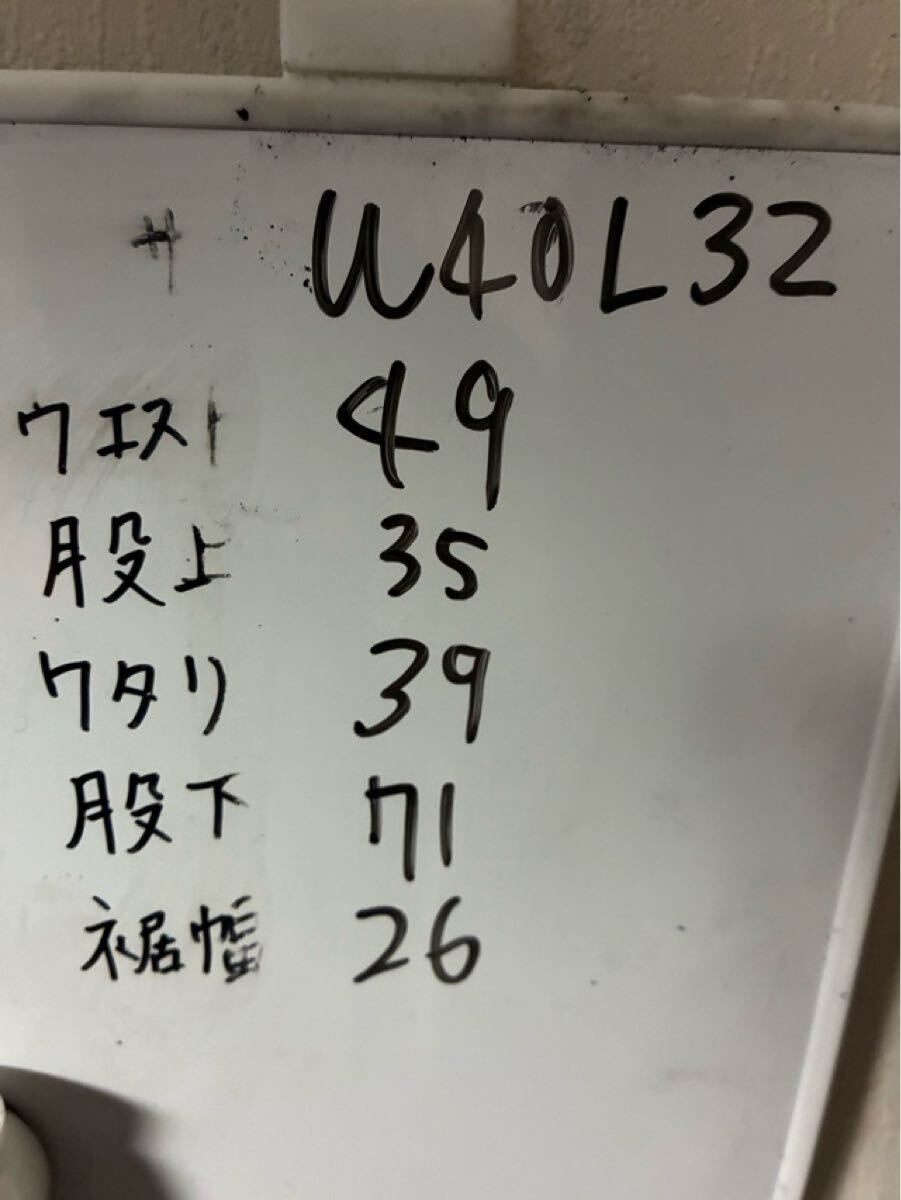 W40L32
ウエスト 49
股上 35
ワタリ 39
股下 71
裾幅 26